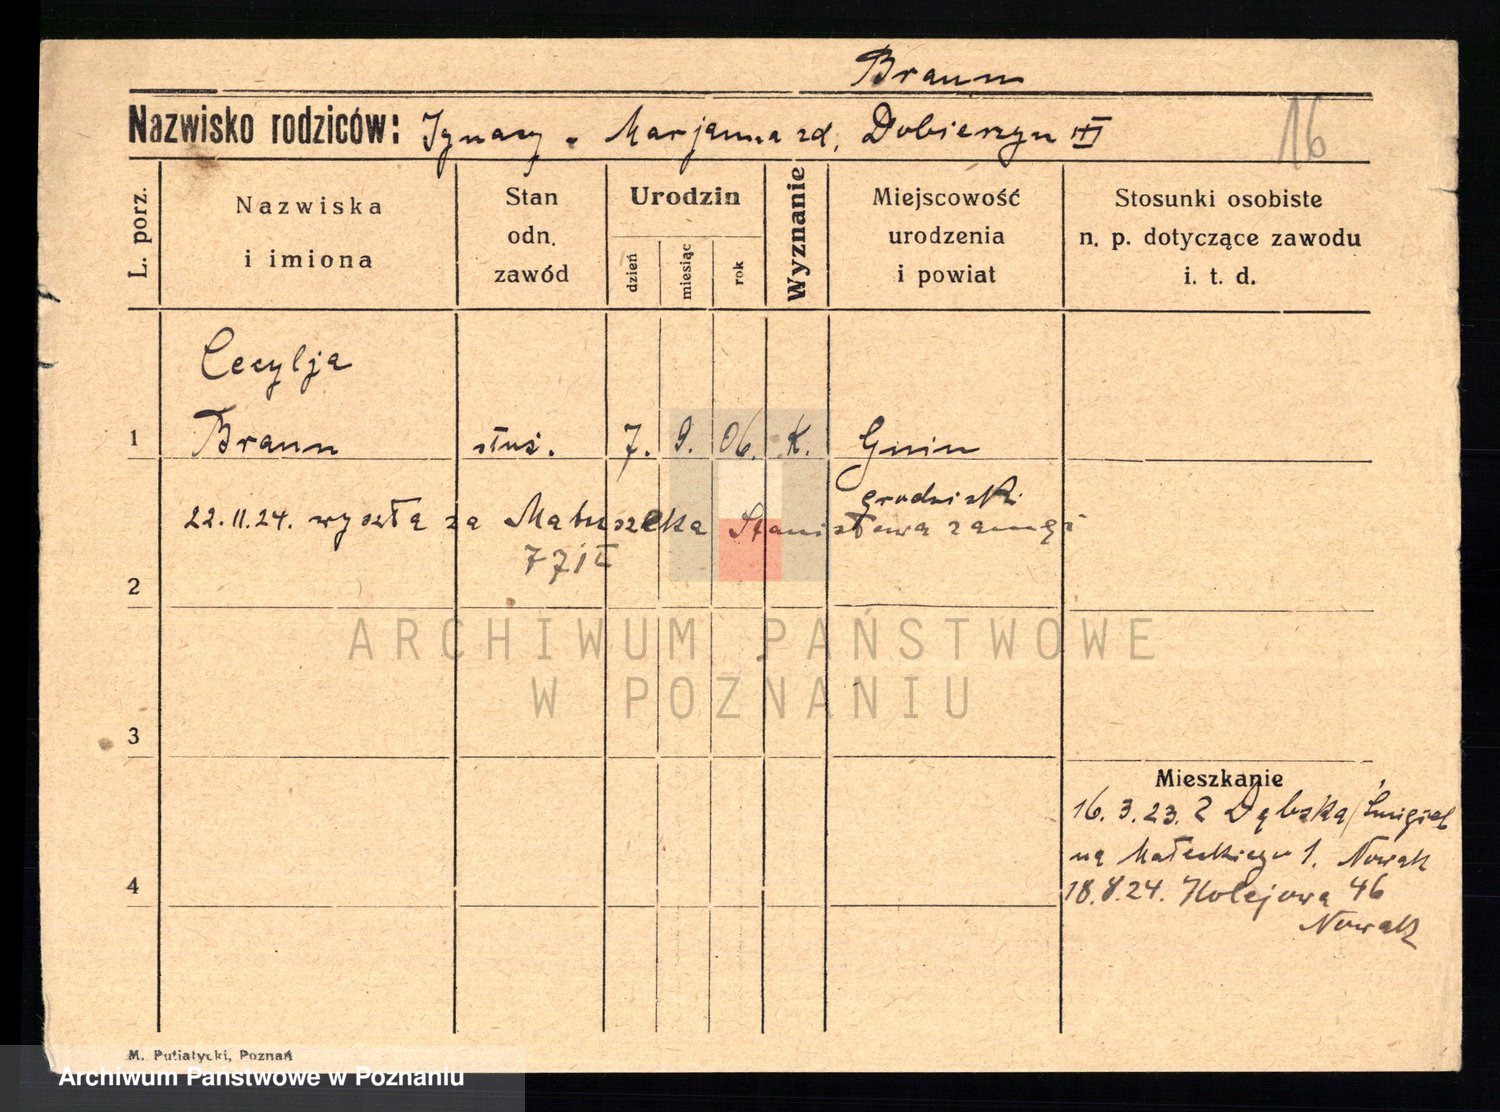 Braun
Nazwisko rodziców: Ignacy - Marjanna zd. Dobierzyn
16
L. porz.
Nazwiska i imiona
Stan odn. zawód
Urodzin
dzień
miesiąc
rok
Wyznanie
Miejscowość urodzenia i powiat
Stosunki osobiste n. p. dotyczące zawodu i. t. d.
Cecylja
1 Braun służ. 7. 9. 06. K. Gnin
grodziski
22.11.24. wyszła za Matuszelka Stanisława
2
ARCHIWUM PAŃSTWOWE
W POZNANIU
3
Mieszkanie
16.3.23. Z Dąbska / Śmigiel
4 na Małeckiego 1. Nowak
18.8.24. Kolejowa 46
Nowak
M. Putiatycki, Poznań
Archiwum Państwowe w Poznaniu